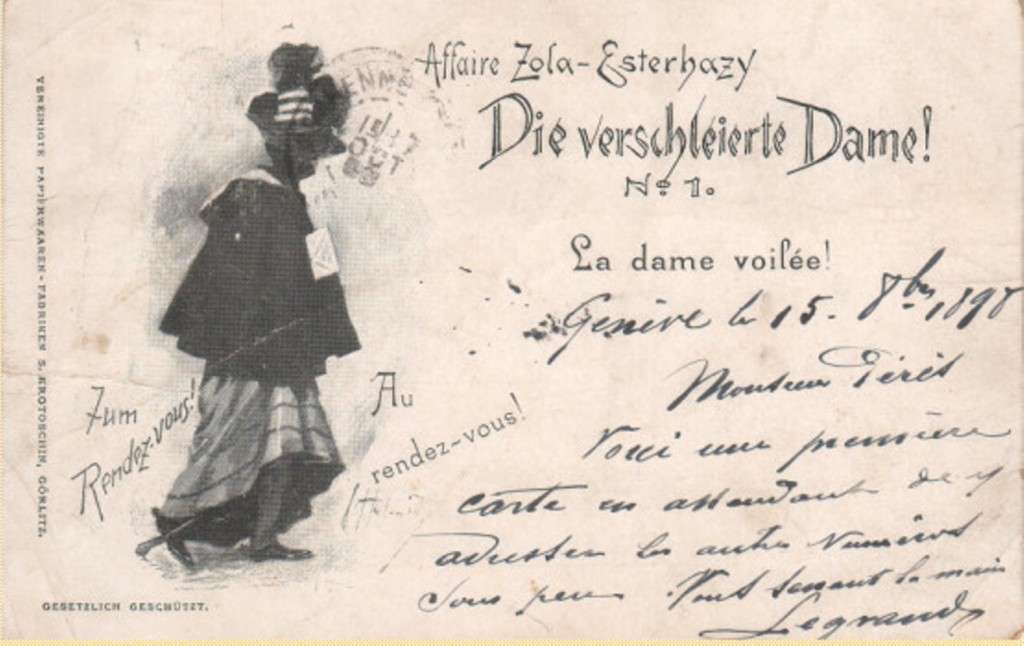 Affaire Zola-Esterhazy
Die verschleierte Dame!
No 1.
La dame voilée!
Genève le 15. 8bre 1898
Monsieur
Voici une première
carte en attendant de
adresser les autres Numéros
sous peu. Vous serrant la main
Legrand
Zum
Rendez-vous!
Au
rendez-vous!
VEREINIGTE PAPIERWAAREN-FABRIKEN S. KROTOSCHIN, GÖRLITZ.
GESETZLICH GESCHÜTZT.